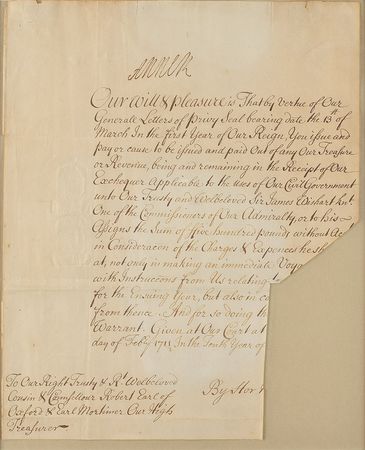 ANNE R
Our Will & pleasure is That by vertue of Our
Generall Letters of Privy Seal bearing date the 13th of
March In the first Year of Our Reign, You issue and
pay or cause to be issued and paid Out of any Our Treasure
or Revenue, being and remaining in the Receipt of Our
Exchequer Applicable to the Uses of Our Civil Government
unto Our Trusty and Welbeloved Sir James Wishart Knt.
One of the Commissioners of Our Admiralty, or to his
Assigns the Sum of ffive hundred pounds without Ac
in Consideracon of the Charges & Expences he sh
at, not only in making an immediate Voya
with Instruccons from Us relating t
for the Ensuing Year, but also in co
from thence. And for so doing th
Warrant. Given at Our Court at
day of Febry 1711 In the Tenth Year of
To Our Right Trusty & Rt. Welbeloved
Cousin & Councellour Robert Earl of
Oxford & Earl Mortimer Our High
Treasurer
By Her